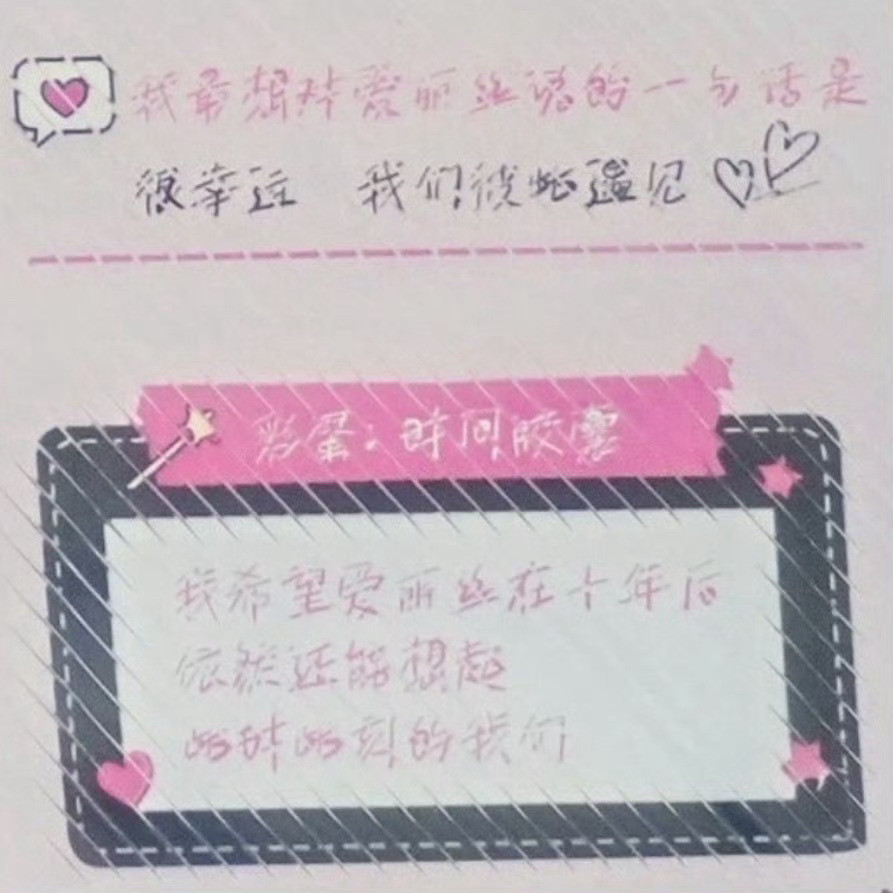 我最想对爱丽丝说的一句话是
很幸运 我们彼此遇见
彩蛋：时间胶囊
我希望爱丽丝在十年后
依然还能想起
此时此刻的我们